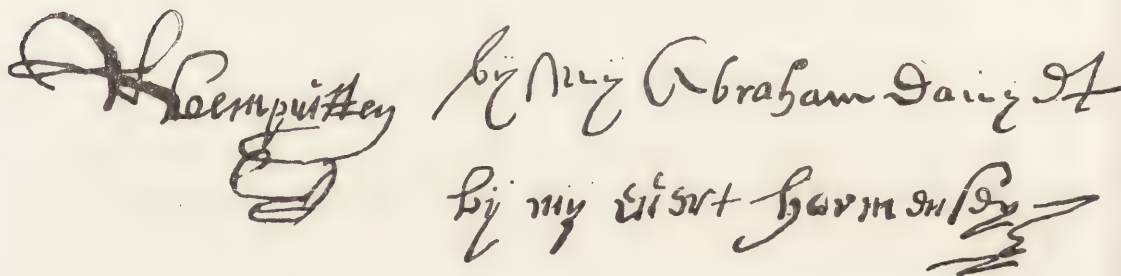 Leempuitten
bij mij Abraham Davijdt
bij mij Evert harmensen